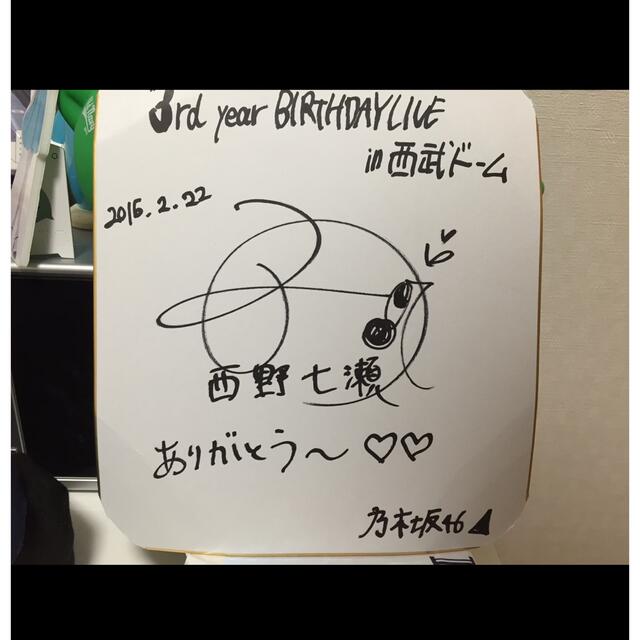 3rd year BIRTHDAY LIVE
in 西武ドーム
2015.2.22
西野七瀬
ありがとう〜♡♡
乃木坂46